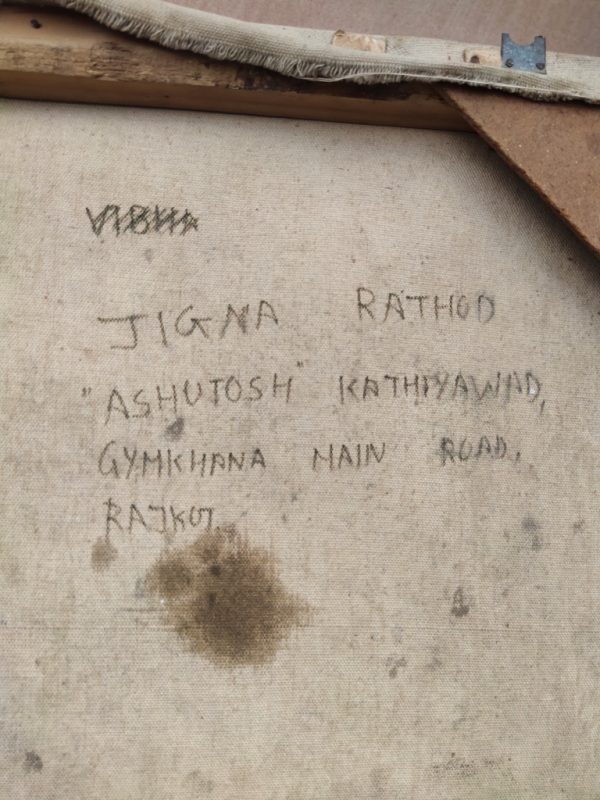 VIBHA
JIGNA RATHOD
"ASHUTOSH" KATHIYAWAD,
GYMKHANA MAIN ROAD.
RAJKOT.